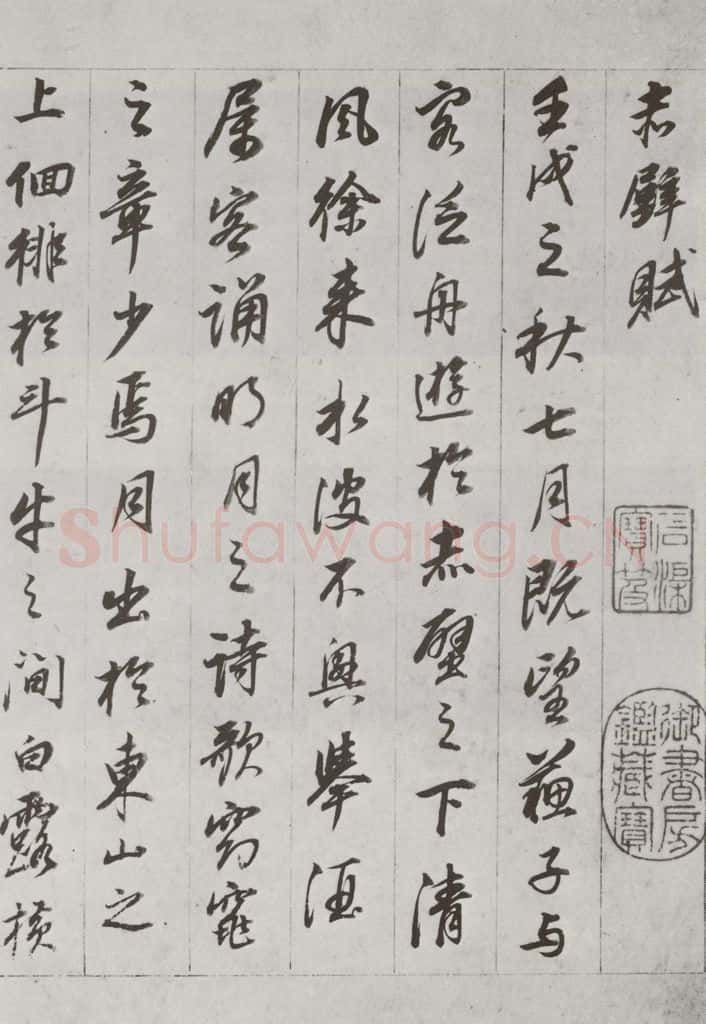 赤壁賦
壬戌之秋七月既望蘇子与
客泛舟遊於赤壁之下清
風徐来水波不興舉酒
属客誦明月之詩歌窈窕
之章少焉月出於東山之
上徊徘於斗牛之間白露橫
石渠寶笈
御書房鑑藏寶
Shufawang.CN